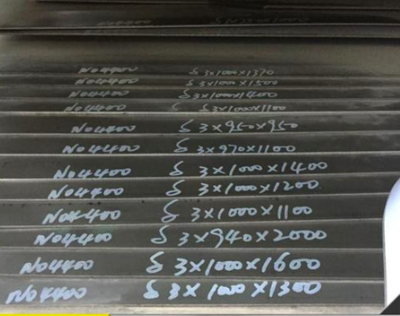 N04400 δ 3×1000×1370
N04400 δ 3×1000×1500
N04400 δ 3×1000×1400
N04400 δ 3×1000×1100
N04400 δ 3×950×950
N04400 δ 3×970×1100
N04400 δ 3×1000×1400
N04400 δ 3×1000×1200
N04400 δ 3×1000×1100
N04400 δ 3×940×2000
N04400 δ 3×1000×1600
N04400 δ 3×1000×1300